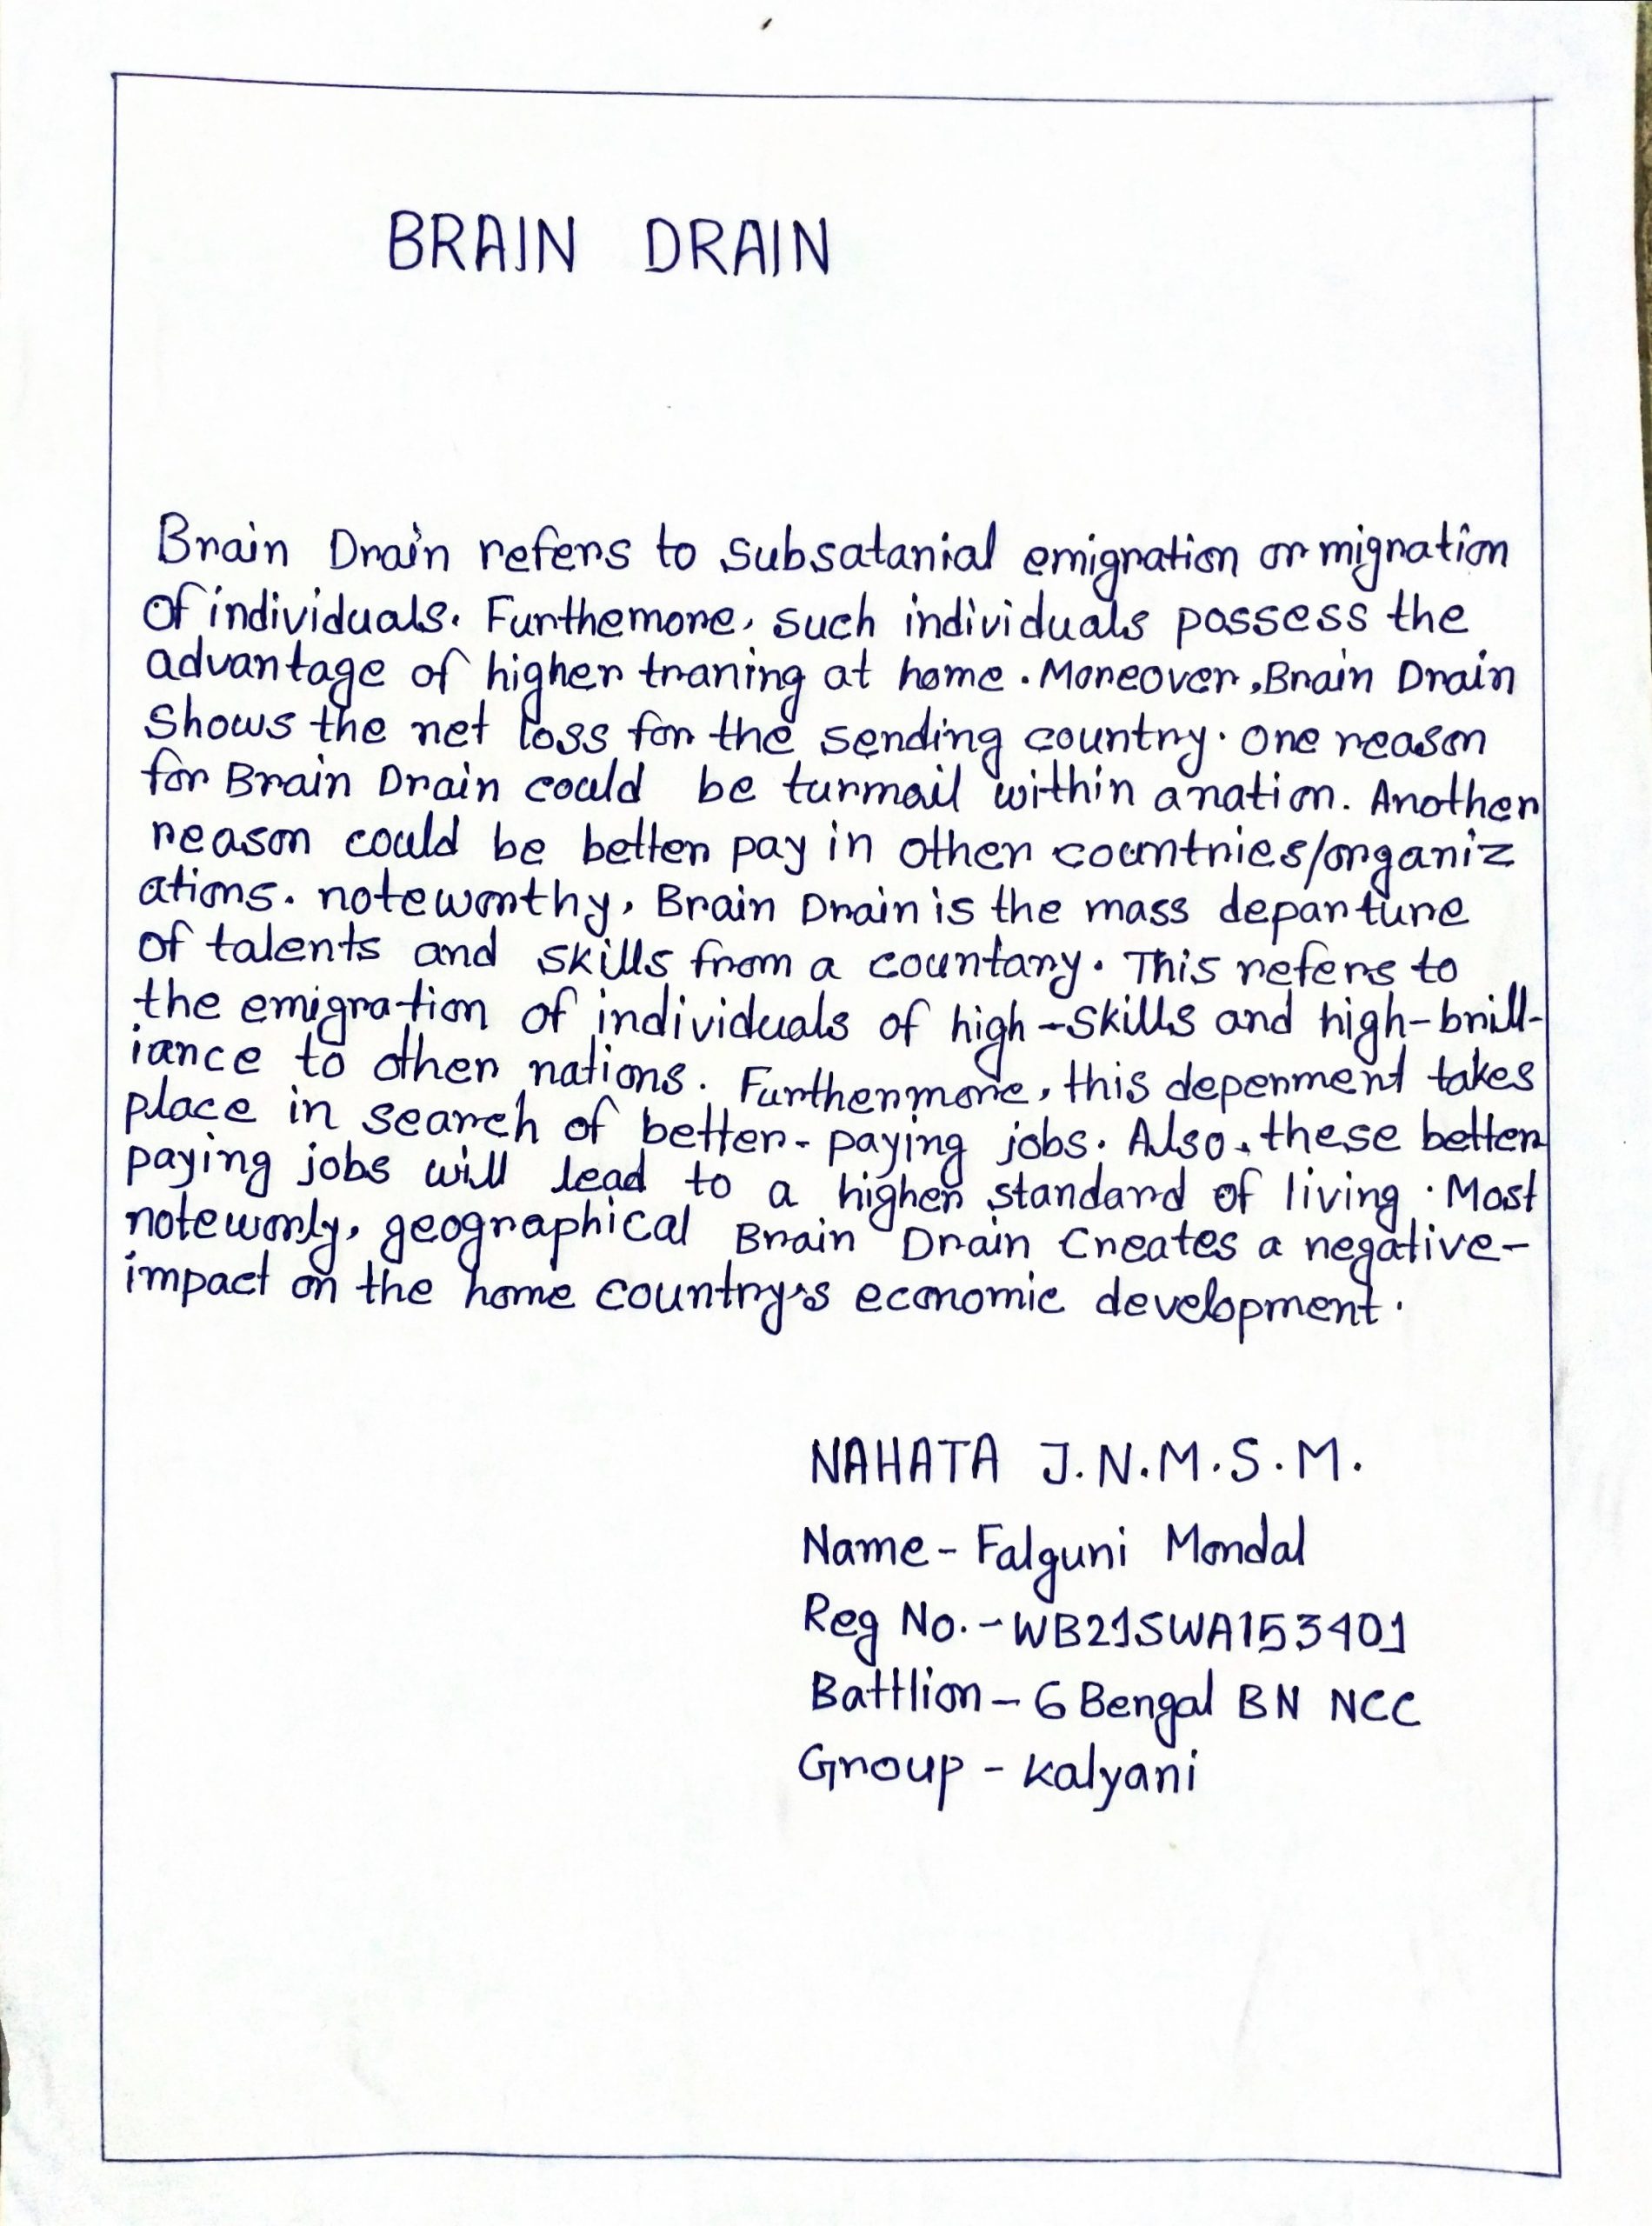 BRAIN DRAIN
Brain Drain refers to Subsatanial emigration or migration
of individuals. Furthemore, such individuals possess the
advantage of higher traning at home. Moreover, Brain Drain
Shows the net loss for the sending country. One reason
for Brain Drain could be turmail within a nation. Another
reason could be better pay in other countries/organiz
ations. noteworthy, Brain Drain is the mass departure
of talents and skills from a countary. This refers to
the emigration of individuals of high-skills and high-brill-
iance to other nations. Furthermore, this deperment takes
place in search of better-paying jobs. Also, these better
paying jobs will lead to a higher standard of living. Most
noteworly, geographical Brain Drain Creates a negative-
impact on the home country's economic development.
NAHATA J.N.M.S.M.
Name - Falguni Mondal
Reg No. - WB21SWA153401
Battlion - 6 Bengal BN NCC
Group - Kalyani